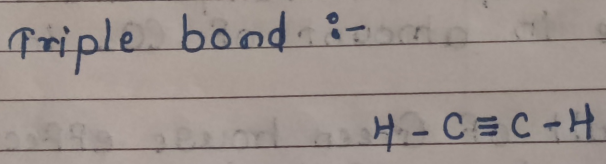 Triple bond :-
H - C ≡ C - H